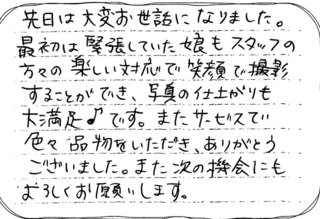 先日は大変お世話になりました。
最初は緊張していた娘もスタッフの
方々の楽しい対応で笑顔で撮影
することができ、写真の仕上がりも
大満足♪です。またサービスで
色々品物をいただき、ありがとう
ございました。また次の機会にも
よろしくお願いします。